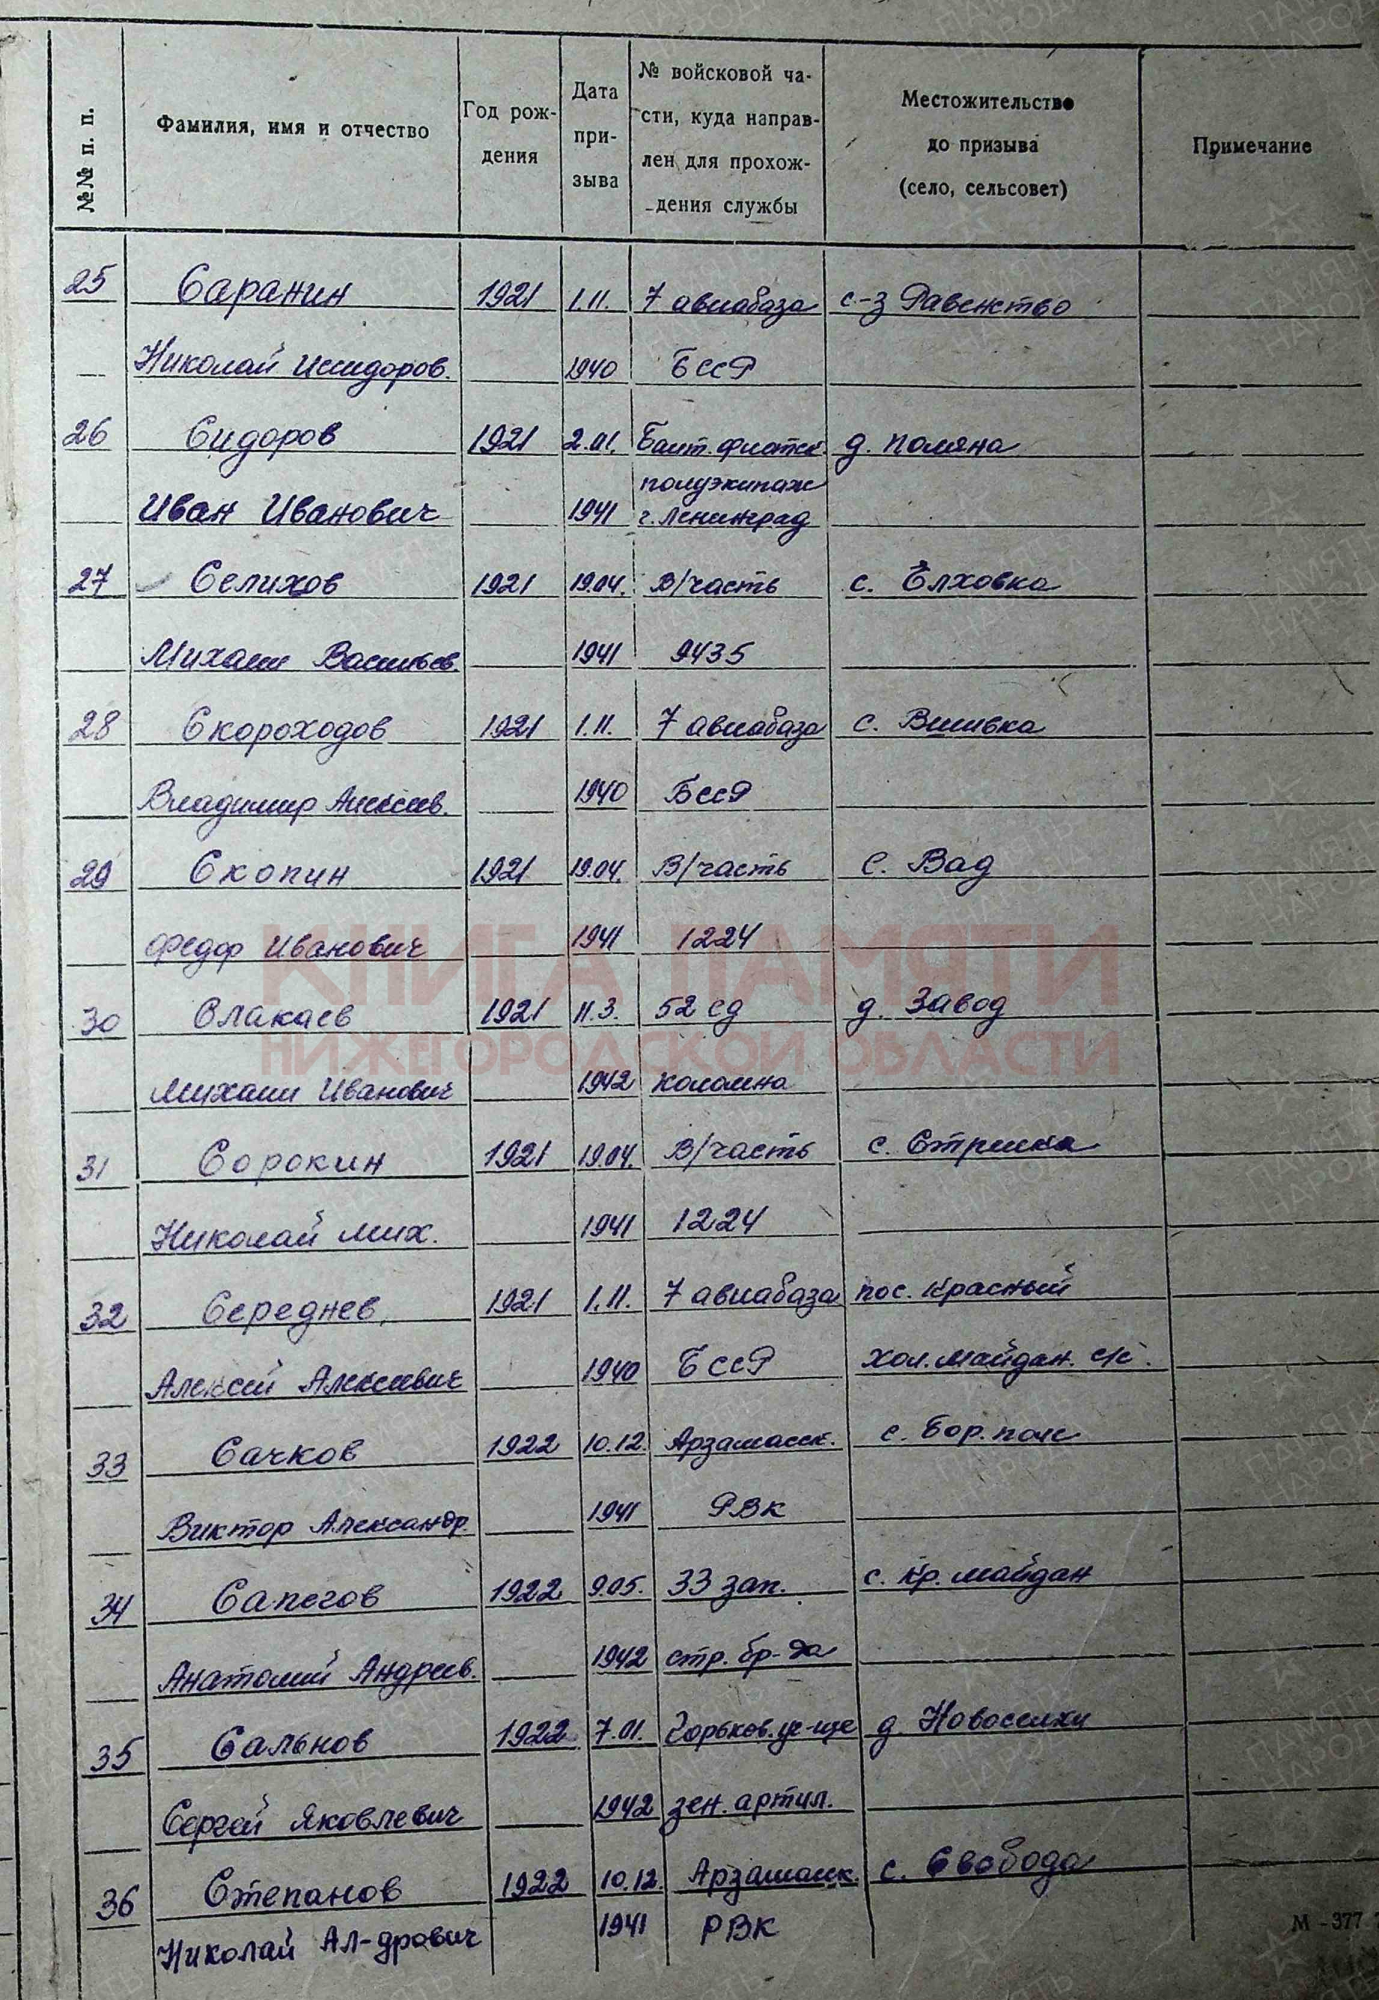 №№ п. п. Фамилия, имя и отчество Год рождения Дата призыва № войсковой части, куда направлен для прохождения службы Местожительство до призыва (село, сельсовет) Примечание
25 Саранин 1921 1.11. 7 авиабаза с-з Равенство
Николай Исидоров. 1940 БССР
26 Сидоров 1921 2.01. Балт. флотск. д. Поляна
полуэкипаж
Иван Иванович 1941 г. Ленинград
27 Селихов 1921 19.04. В/часть с. Елховка
Михаил Васильев. 1941 9435
28 Скороходов 1921 1.11. 7 авиабаза с.
Владимир Алексеев. 1940 БССР
29 Скопин 1921 19.04. В/часть с. Вад
Федор Иванович 1941 1224
КНИГА ПАМЯТИ
30 Слакаев 1921 11.3. 52 сд д. Завод
НИЖЕГОРОДСКОЙ ОБЛАСТИ
Михаил Иванович 1942 Коломна
31 Сорокин 1921 19.04. В/часть с. Стрелка
Николай Мих. 1941 1224
32 Середнев 1921 1.11. 7 авиабаза пос. Красный
Алексей Алексеевич 1940 БССР Хол. Майдан. с/с.
33 Сачков 1922 10.12. Арзамасск. с. Бор. поле
Виктор Александр. 1941 РВК
34 Сапегов 1922 9.05. 33 зап. с. Кр. Майдан
Анатолий Андреев. 1942 стр. бр-да
35 Сальнов 1922 7.01. Горьков. уч-ще д. Новоселки
Сергей Яковлевич 1942 зен. артил.
36 Степанов 1922 10.12. Арзамаск. с. Свобода
Николай Ал-дрович 1941 РВК
М - 377